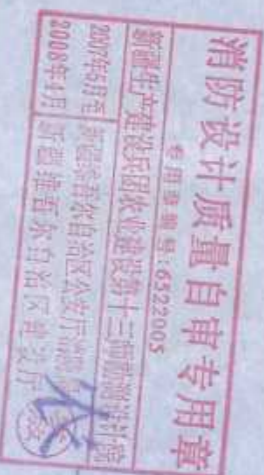 消防设计质量自审专用章
专用章编号:6522005
新疆生产建设兵团农业建设第十三师勘测设计院
2007年5月至 新疆维吾尔自治区公安厅消防
2008年4月 新疆维吾尔自治区建设厅